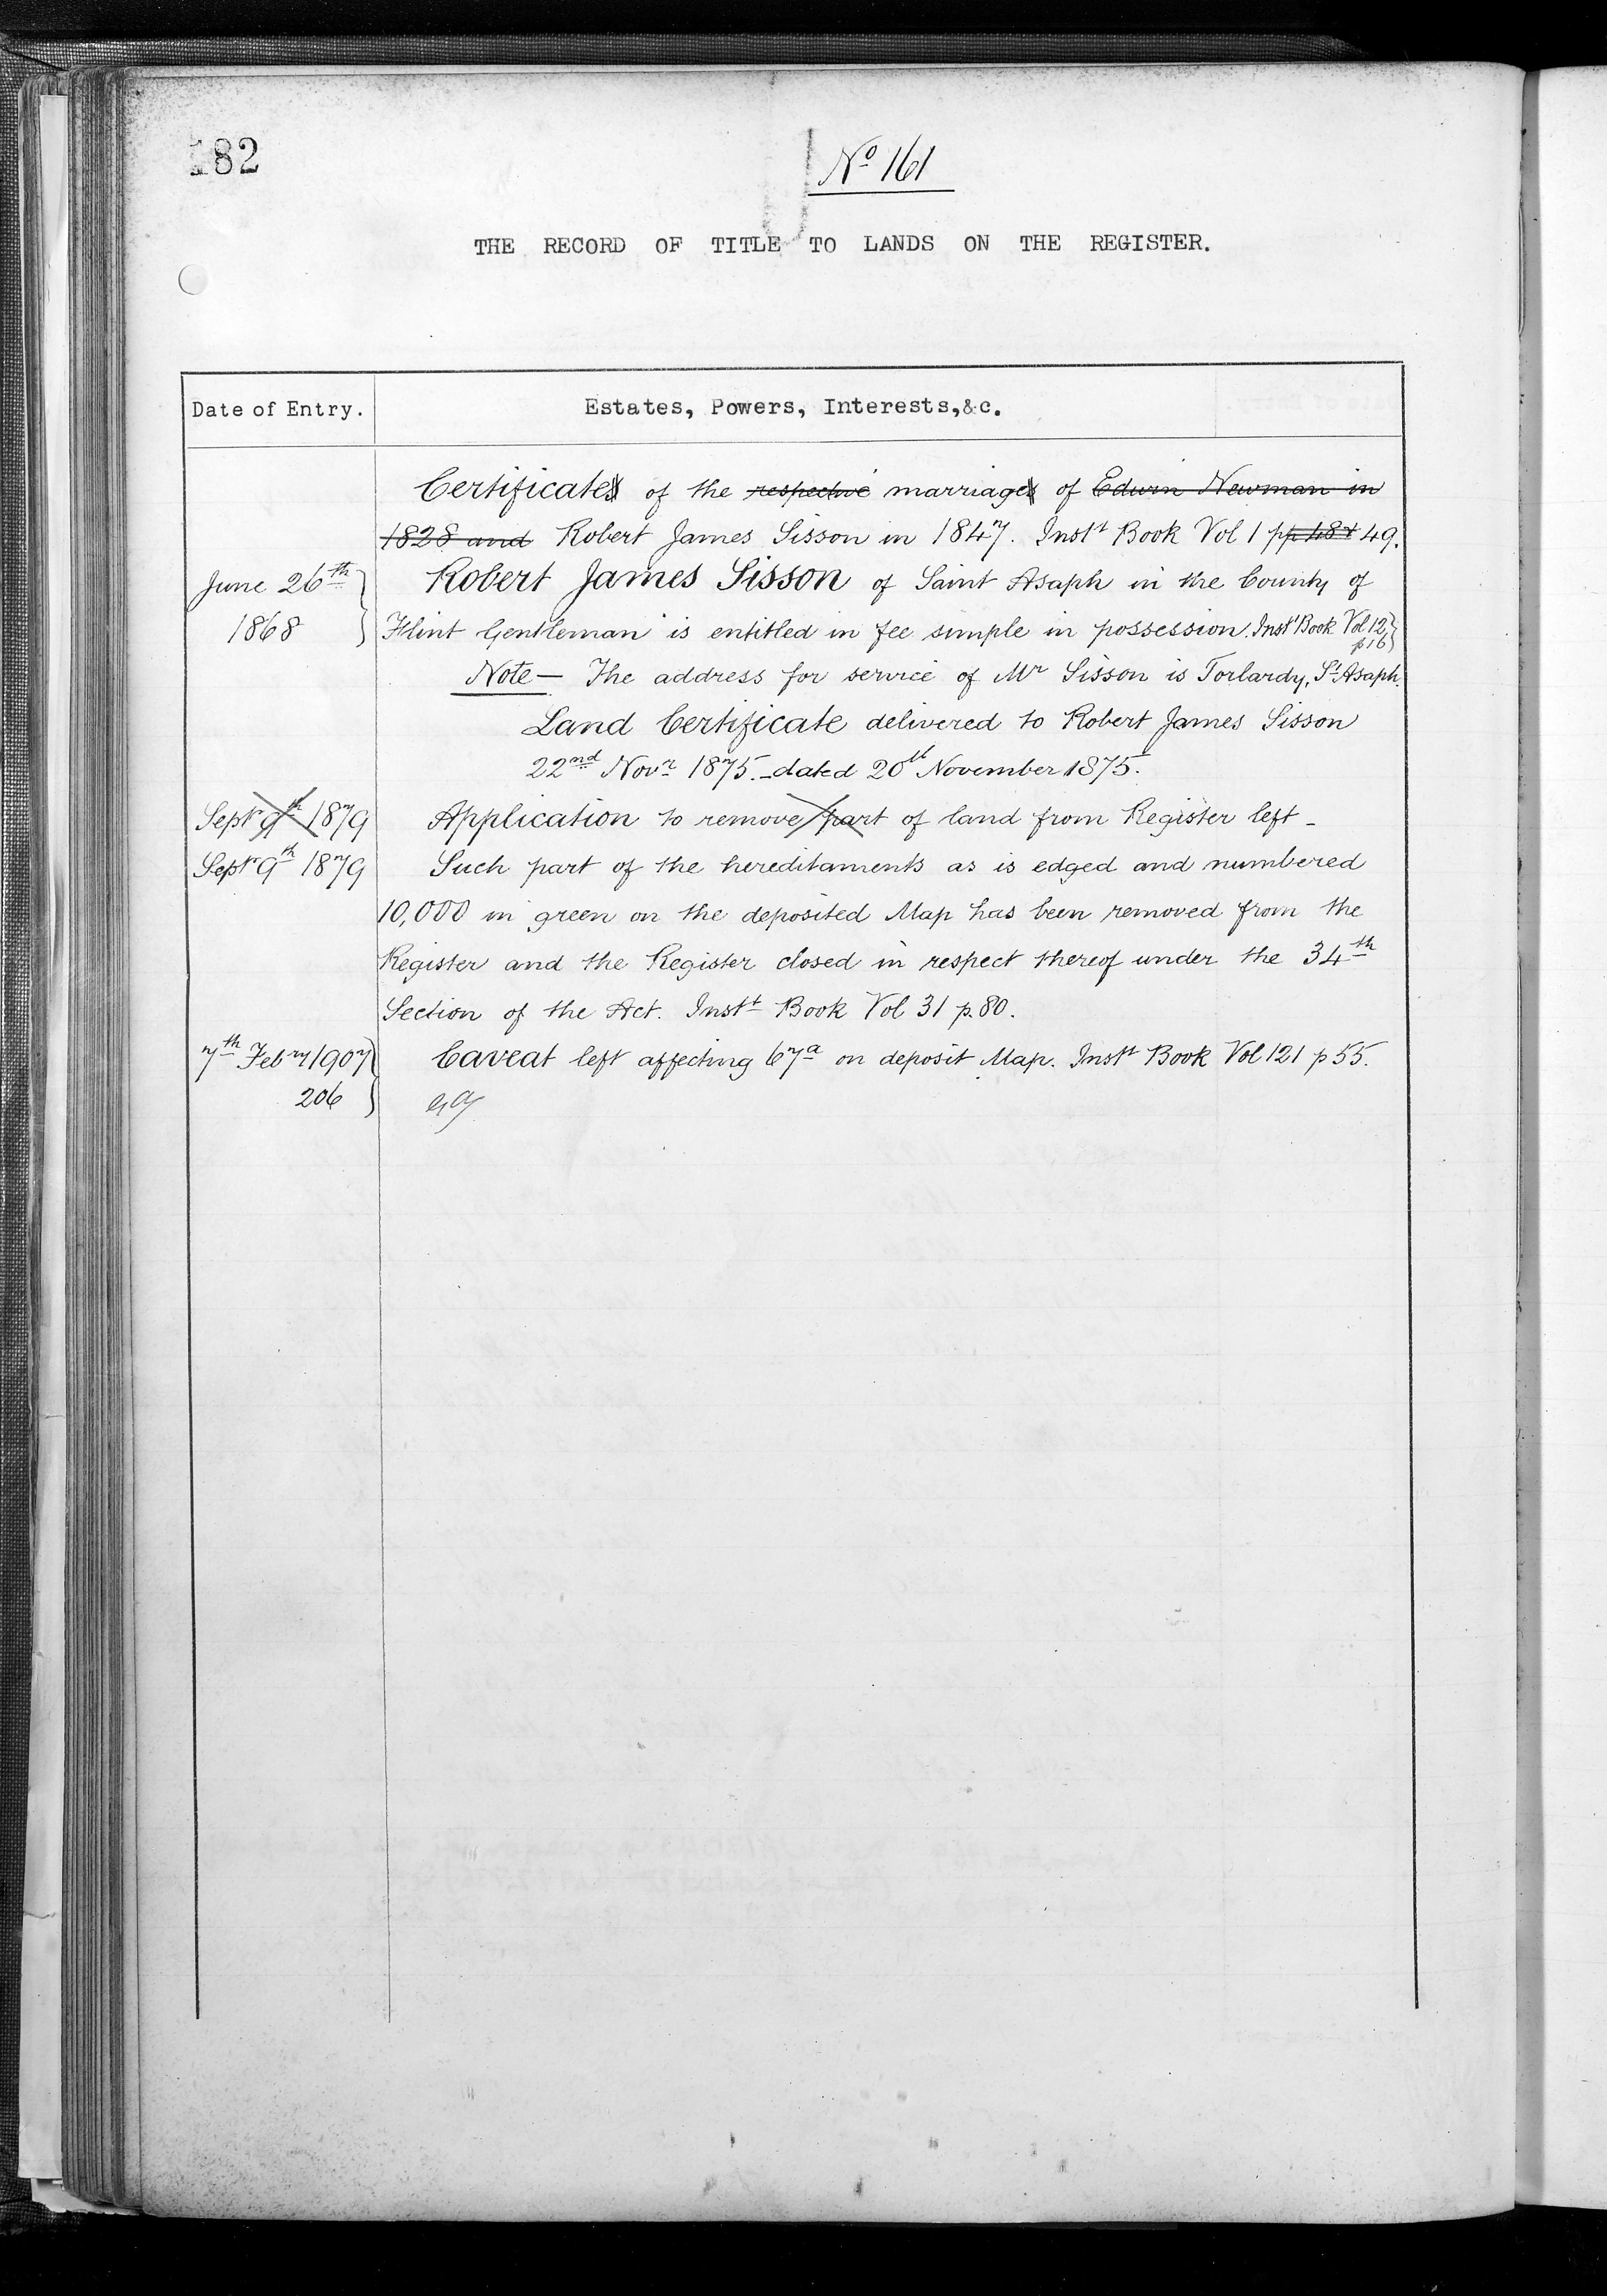 182
No 161
THE RECORD OF TITLE TO LANDS ON THE REGISTER.
Date of Entry. Estates, Powers, Interests,&c.
Certificates of the respective marriages of Edwin Newman in
1828 and Robert James Sisson in 1847. Instt Book Vol 1 pp 48 & 49.
June 26th Robert James Sisson of Saint Asaph in the County of
1868 Flint Gentleman is entitled in fee simple in possession. Instt Book Vol 12
p 16
Note — The address for service of Mr Sisson is Torlardy, St Asaph.
Land Certificate delivered to Robert James Sisson
22nd Novr 1875. - dated 20th November 1875.
Septr 9th 1879 Application to remove part of land from Register left -
Septr 9th 1879 Such part of the hereditaments as is edged and numbered
10,000 in green on the deposited Map has been removed from the
Register and the Register closed in respect thereof under the 34th
Section of the Act. Instt Book Vol 31 p. 80.
7th Feby 1907 Caveat left affecting 67a on deposit Map. Instt Book Vol 121 p 55.
206